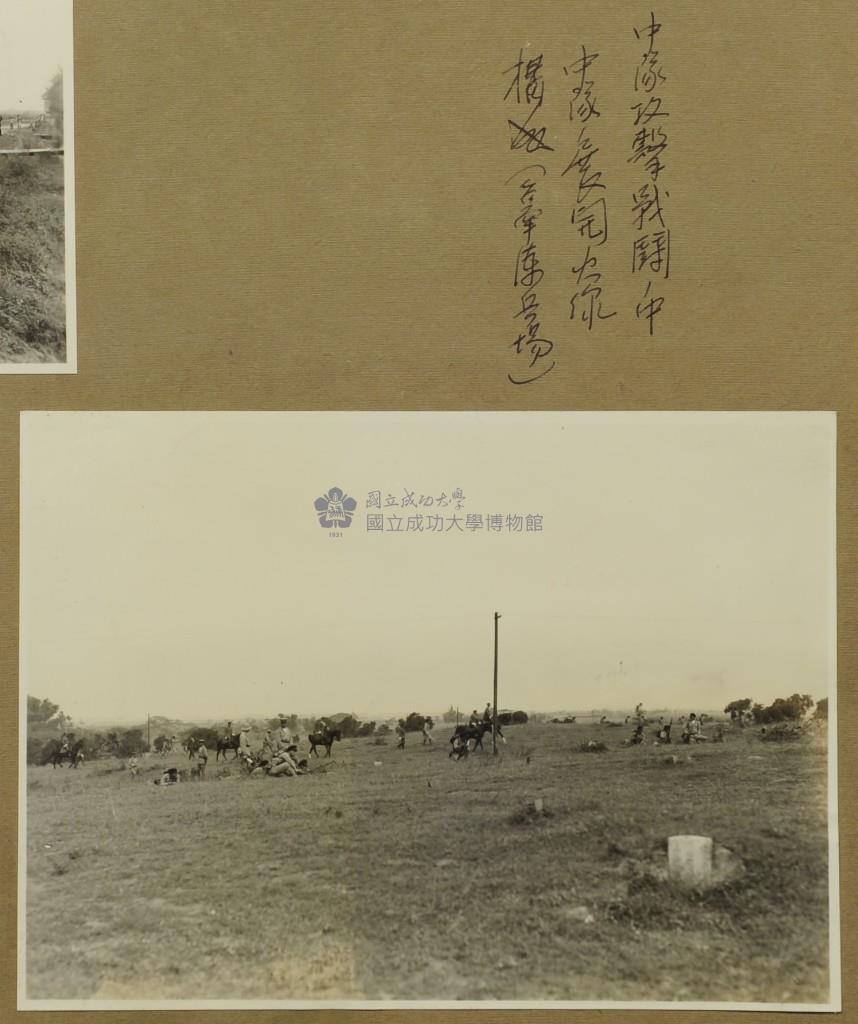 中隊攻擊戰鬪中
中隊展開火線
構成（台南練兵場）
國立成功大學
國立成功大學博物館
1931